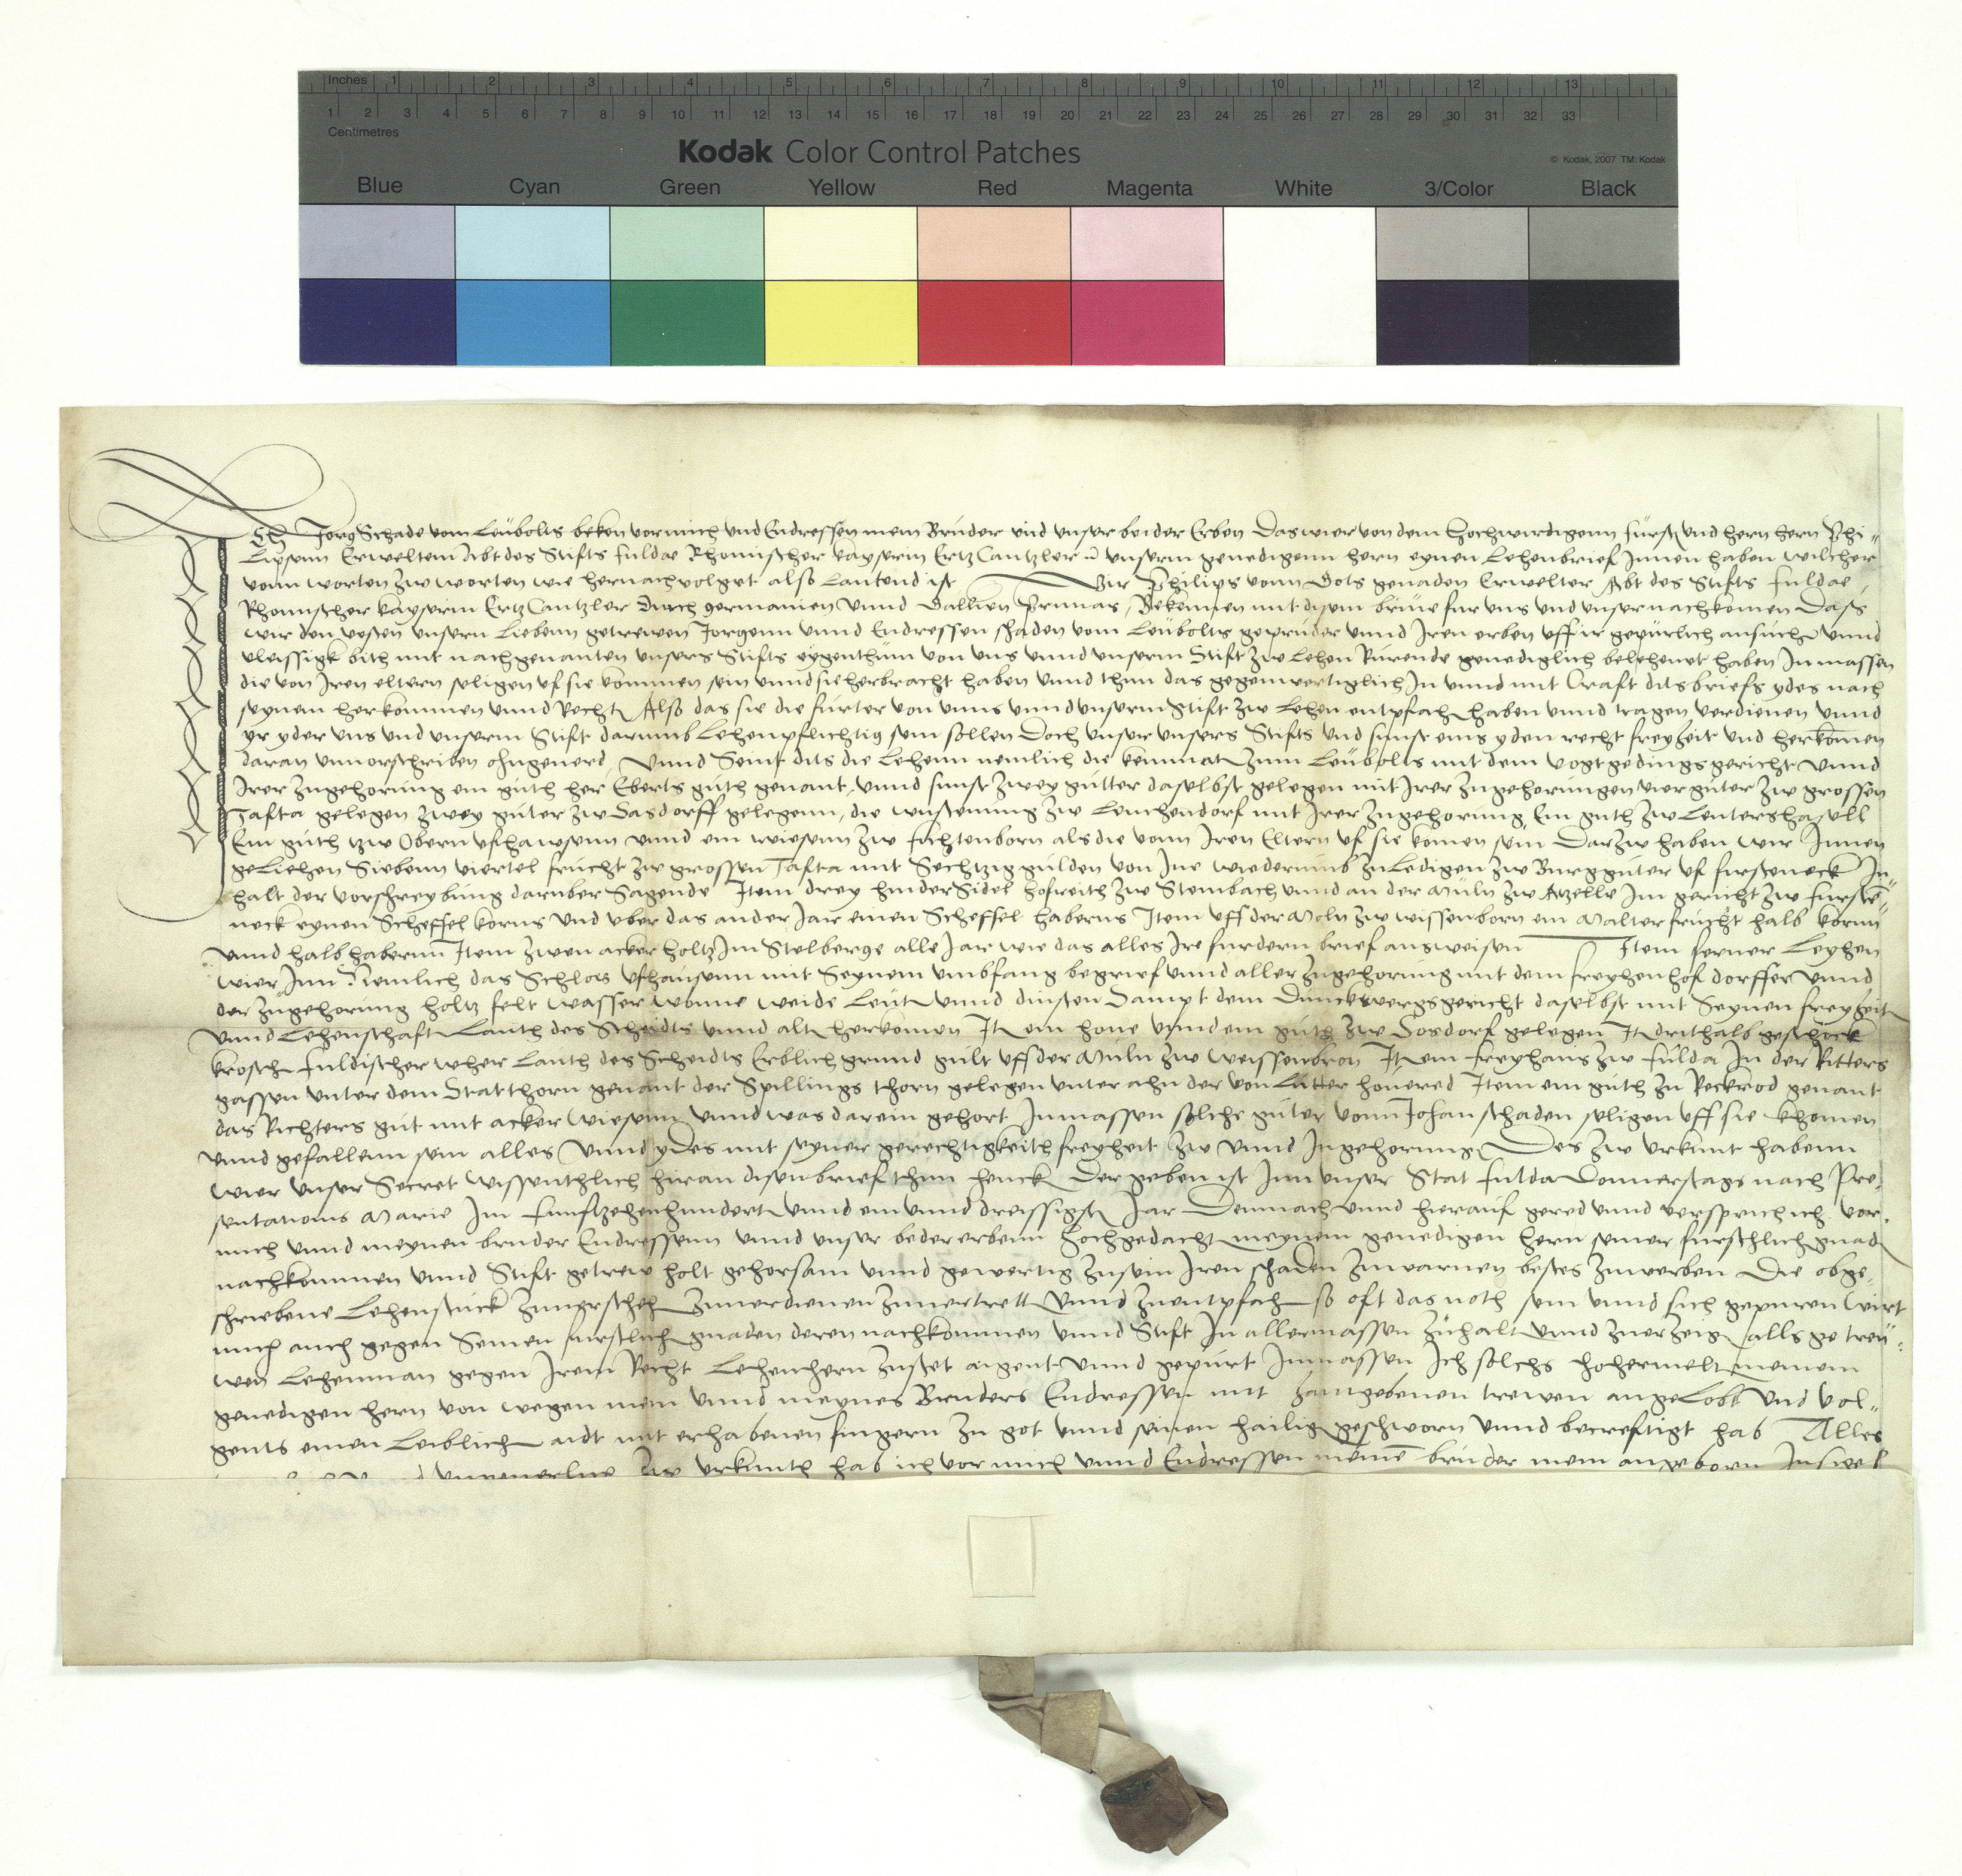 Inches 1 2 3 4 5 6 7 8 9 10 11 12 13
1 2 3 4 5 6 7 8 9 10 11 12 13 14 15 16 17 18 19 20 21 22 23 24 25 26 27 28 29 30 31 32 33
Centimetres
Kodak Color Control Patches
© Kodak, 2007 TM: Kodak
Blue Cyan Green Yellow Red Magenta White 3/Color Black
Ich Jorg Schade vom Leübolts beken vor mich und Endressen mein Brüder und unser beider Erben Das wier von dem Hochwirdigenn fürst und hern hern Phi-
lipsenn Erweltem Abt des Stifts fuldae Rhomischer kayserin ErtzCantzler unserm genedigenn hern eynen Lehenbrief Innen haben wilcher
vonn worten zw worten wie hernach volget also Lautend ist Wir Philips vonn Gots genaden Erwelter Abt des Stifts fuldae
Rhomischer kayserin ErtzCantzler durch germanien unnd Gallien Primas, Bekennen mit disem brive fur uns und unser nachkomen Dass
wir den vesten unsern Liebenn getrewen Jorgenn unnd Endressen schaden vom Leübolts geprüder unnd Iren erben uff ir gepürlich ansuch unnd
vleissigk bith mit nachgenanten unsers Stifts eygenthüm von uns unnd unserm Stift zw Lehen Rürende genediglich belehenet haben In massen
die von Iren eltern seligen uf sie kommen sein unnd sie herbracht haben unnd thun das gegenwertiglich In unnd mit Craft dits briefs ydes nach
seynem herkommen unnd Recht Also das sie die fürter von unns unnd unserm Stift zw Lehen entpfah haben unnd tragen verdienen unnd
yr yder uns und unserm Stift darumb Lehenpflichtig sein sollen Doch unser unsers Stifts und sunst eins yden recht freyheit und herkomen
daran unvorschriben ohngeverd, unnd Seint dits die Lehenn nemlich die kemnat zum Leübolts mit dem vogt gedings gericht unnd
Irer zugehorung ein güth her Eberts güth genant, unnd sunst zwey gütter daselbst gelegen mit Irer zugehorungen vier güter zw grossen
Tafta gelegen zwey güter zw Sasdorff gelegenn, die wüstenung zw Leuchendorf mit Irer zugehorung, Ein güth zw Lentershasell
Ein güth tzw Obern ufhawsenn unnd ein wiesenn zw fachtenborn als die vonn Iren Eltern uf sie komen sein Darzw haben wir Innen
geliehen Siebenn viertel frücht zw grossen Tafta mit Sechtzig gülden von Ine wiederumb zuledigen zw Burggüter uf fursteneck In-
halt der vorschreybüng darüber Sagende Item drey hinder Sidel hofreith zw Steinbach unnd an der Müln zw Arzelle Im gericht zw fursten-
neck eynen Scheffel korns und uber das ander Jar einen Scheffel haberns Item uff der Moln zw wissenborn ein Malter frücht halb korn
unnd halb habernn Item zwen acker holtz Im Stelberge alle Jar wie das alles Ire furdern brief ausweisen Item ferner Leyhen
wier Inn Nemlich das Schlos Ufhausenn mit Seynem umbfang begrief unnd aller zugehorung mit dem freyhenhof dorffer unnd
der zugehorung holtz felt wasser wonne weide Leüt unnd dinsten Sampt dem gericht daselbst mit Seynen freyheit
unnd Lehenschaft Lauth des Scheidts unnd alt herkomen It ein hoüe unnd ein güth zw Sosdorf gelegen It drithalb geschock
krosch fuldischer wher Lauth des Scheidts Erblich grund gült uff der Müln zw weissenbron It ein freyhaus zw fulda In der Ritters
gassen unter dem Statthorn genant der Spillings thorn gelegen unter ahn der von Lütter Item ein güth zu Reckrod genant
das Richters güt mit acker wiesenn unnd was darein gehort Inmassen solche güter vonn Johan schaden seligen uff sie khomen
unnd gefallenn sein alles unnd ydes mit seyner gerechtigkeith freyheit zw unnd Ingehorung Des zw urkunt habenn
wier unser Secret wissenthlich hiran disen brief thun henck Der geben ist Inn unser Stat fulda Donnerstags nach Pre-
sentationis Marie Im funftzehenhundert unnd ein unnd dreissigst Jar Demnach unnd hierauf gered unnd versprich ich vor
mich unnd meynen bruder Endressenn unnd unser beder erbenn Hochgedacht meynem genedigen hern seiner furschlich gnad
nachkommen unnd Stift getrew holt gehorsam unnd gewertig zusein Iren schaden zuwarnen bestes zuwerben Die obge-
schriebene Lehenstück zuverdienen zuvertrett unnd zuentpfah so oft das noth sein unnd sich gepuren wirt
mich auch gegen Seinen furstlich gnaden deren nachkommen unnd Stift In allermassen zuhalt unnd zuerzeig alls getreü-
wen Lehenman gegen Irem Recht Lehenhern zustet aigent unnd gepürt Inmassen Ich solchs hohermelt meinem
genedigen hern von wegen mein unnd meynes Bruders Endressen mit hantgebenen trewen angelobt und vol-
gents einen Leiblich aidt mit erhabenen fingern zu got unnd seinen hailig geschworn unnd becreftigt hab Alles
ungeverlich Zw urkunth hab ich vor mich unnd Endressen meinen brüder mein angeborn Insigel